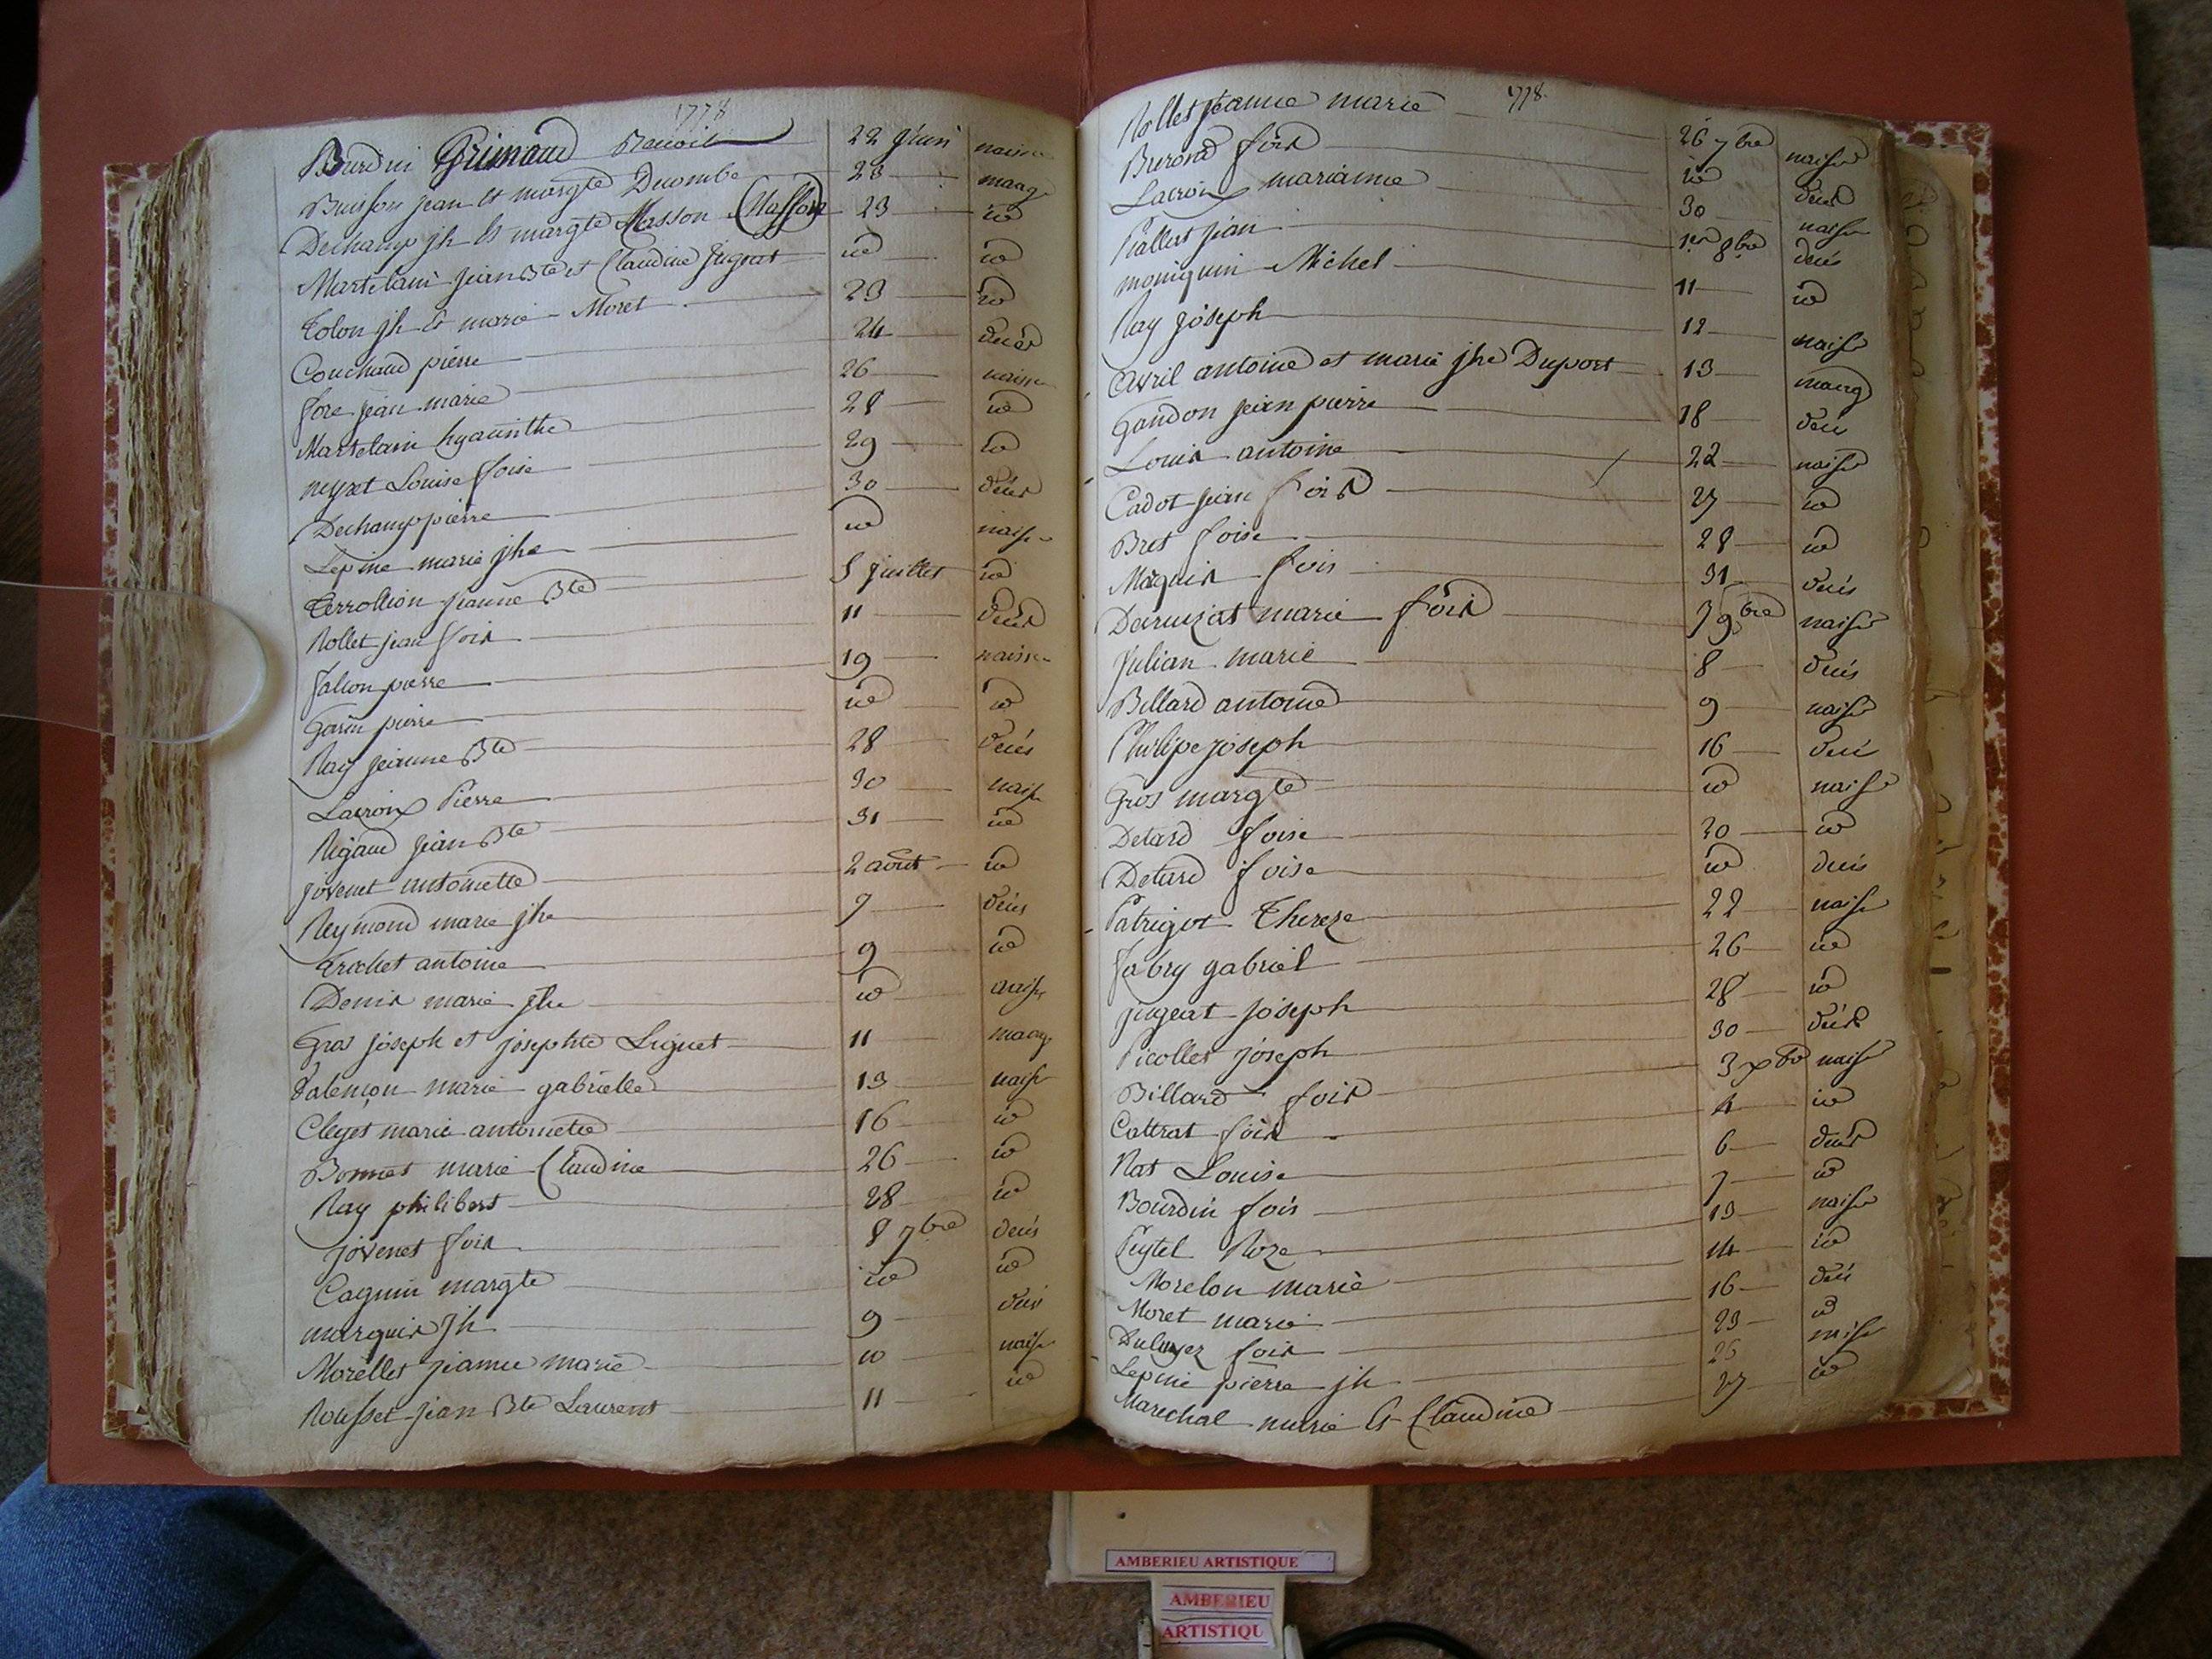 1778
Bourdin Grimaud Benoit 22 juin naiss
Buisson jean et margte Ducombe 23 mariag
Dechamp jh et margte Masson (Masson) 23 id
Martelain jean Bte et Claudine jugeat id id
Tolon jh et marie Moret 23 id
Couchaud pierre 24 décés
fore jean marie 26 naiss
Martelain hyacinthe 28 id
neyret Louise foise 29 id
Dechamp pierre 30 décés
Lepine marie jhe id naiss
Terrollion jeanne Bte 5 juillet id
Rollet jean fois 11 décés
falcon pierre 19 naiss
Garin pierre id id
Ray jeanne Bte 28 décés
Lacroix Pierre 30 naiss
Rigaud jean Bte 31 id
jovenet antoinette 2 août id
Reymond marie jhe 7 décés
Trochet antoine 9 id
Denis marie jhe id naiss
Gros joseph et josephte Liguet 11 mariag
Valençon marie gabrielle 13 naiss
Cleyet marie antoinette 16 id
Bonnet marie Claudine 26 id
Ray philibert 28 id
jovenet fois 8 7bre décés
Cagnin margte id id
marquis jh 9 décés
Morellet jeanne marie 10 naiss
Rousset jean Bte Laurent 11 id
1778
Rollet jeanne marie 26 7bre naiss
Burond fois id décés
Lacroix marianne 30 naiss
Rallet jean 1er 8bre décés
moniquin Michel 11 id
Ray joseph 12 naiss
Avril antoine et marie jhe Duport 13 mariag
Gandon jean pierre 18 décés
Louis antoine 22 naiss
Cadot jean fois 27 id
Bret foise 28 id
Maquis fois 31 décés
Decruzat marie fois 7 9bre naiss
Julian marie 8 décés
Billard antoine 9 naiss
Philipe joseph 16 décé
Gros margte id naiss
Detard foise 20 id
Detard foise id décés
Patrigot Thereze 22 naiss
fabry gabriel 26 id
jugeat joseph 28 id
Picollet joseph 30 décés
Billard fois 3 xbre naiss
Cottrat fois 4 id
Rat Louise 6 décés
Bourdin fois 7 id
Peytel Roze 13 naiss
Morelon marie 14 id
Moret marie 16 décés
fois 23 id
Lepine pierre jh 26 naiss
Marechal marie et Claudine 27 id
AMBERIEU ARTISTIQUE
AMBERIEU
ARTISTIQU